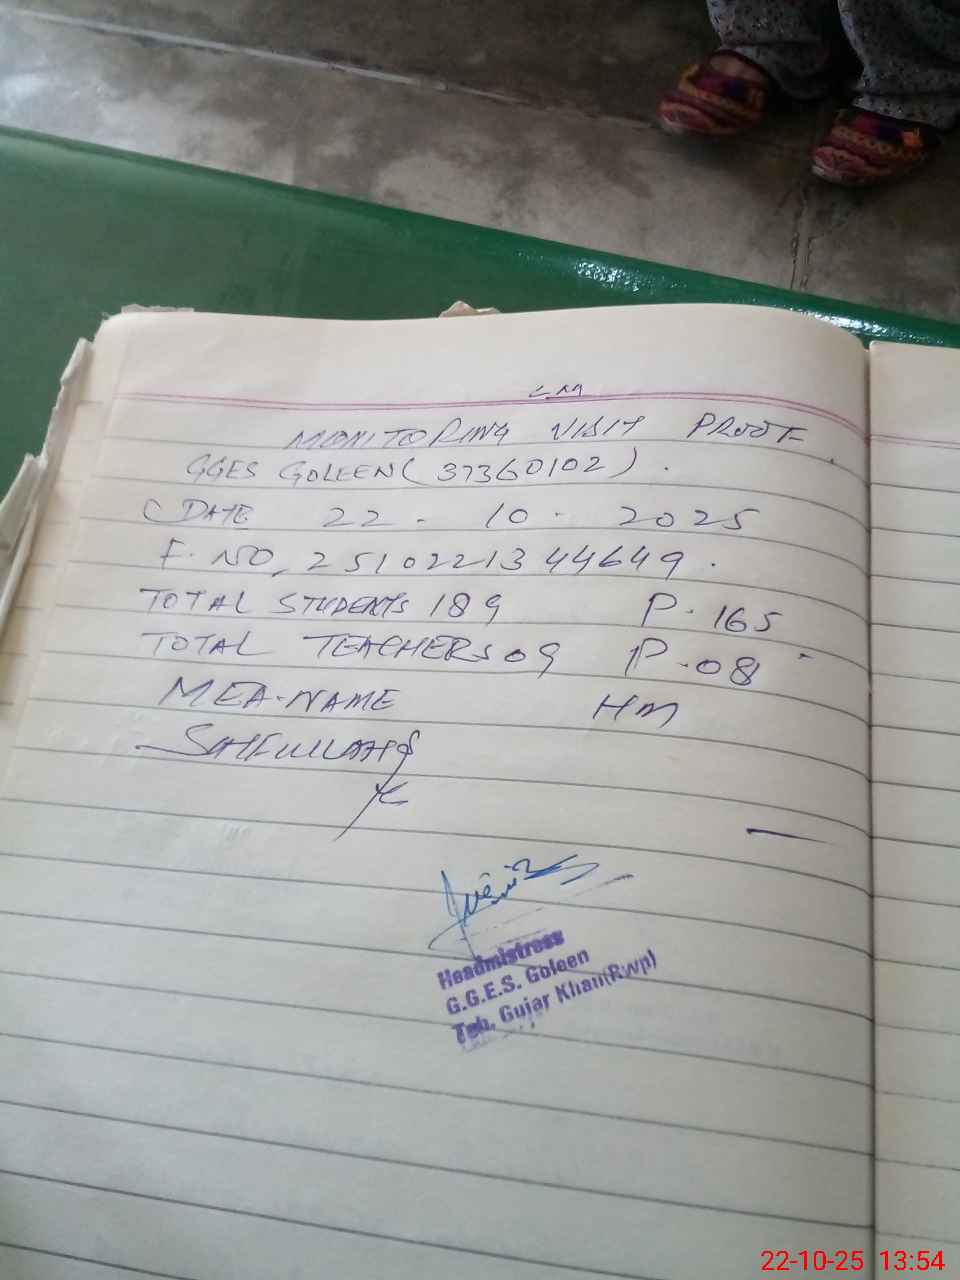 MONITORING VISIT PROOF
GGES GOLEEN (37360102).
DATE 22 - 10 - 2025
F. NO. 2510221344649.
TOTAL STUDENTS 189 P-165
TOTAL TEACHERS 09 P-08
MEA-NAME HM
Headmistress
G.G.E.S. Goleen
Teh. Gujar Khan(Rwp)
22-10-25 13:54